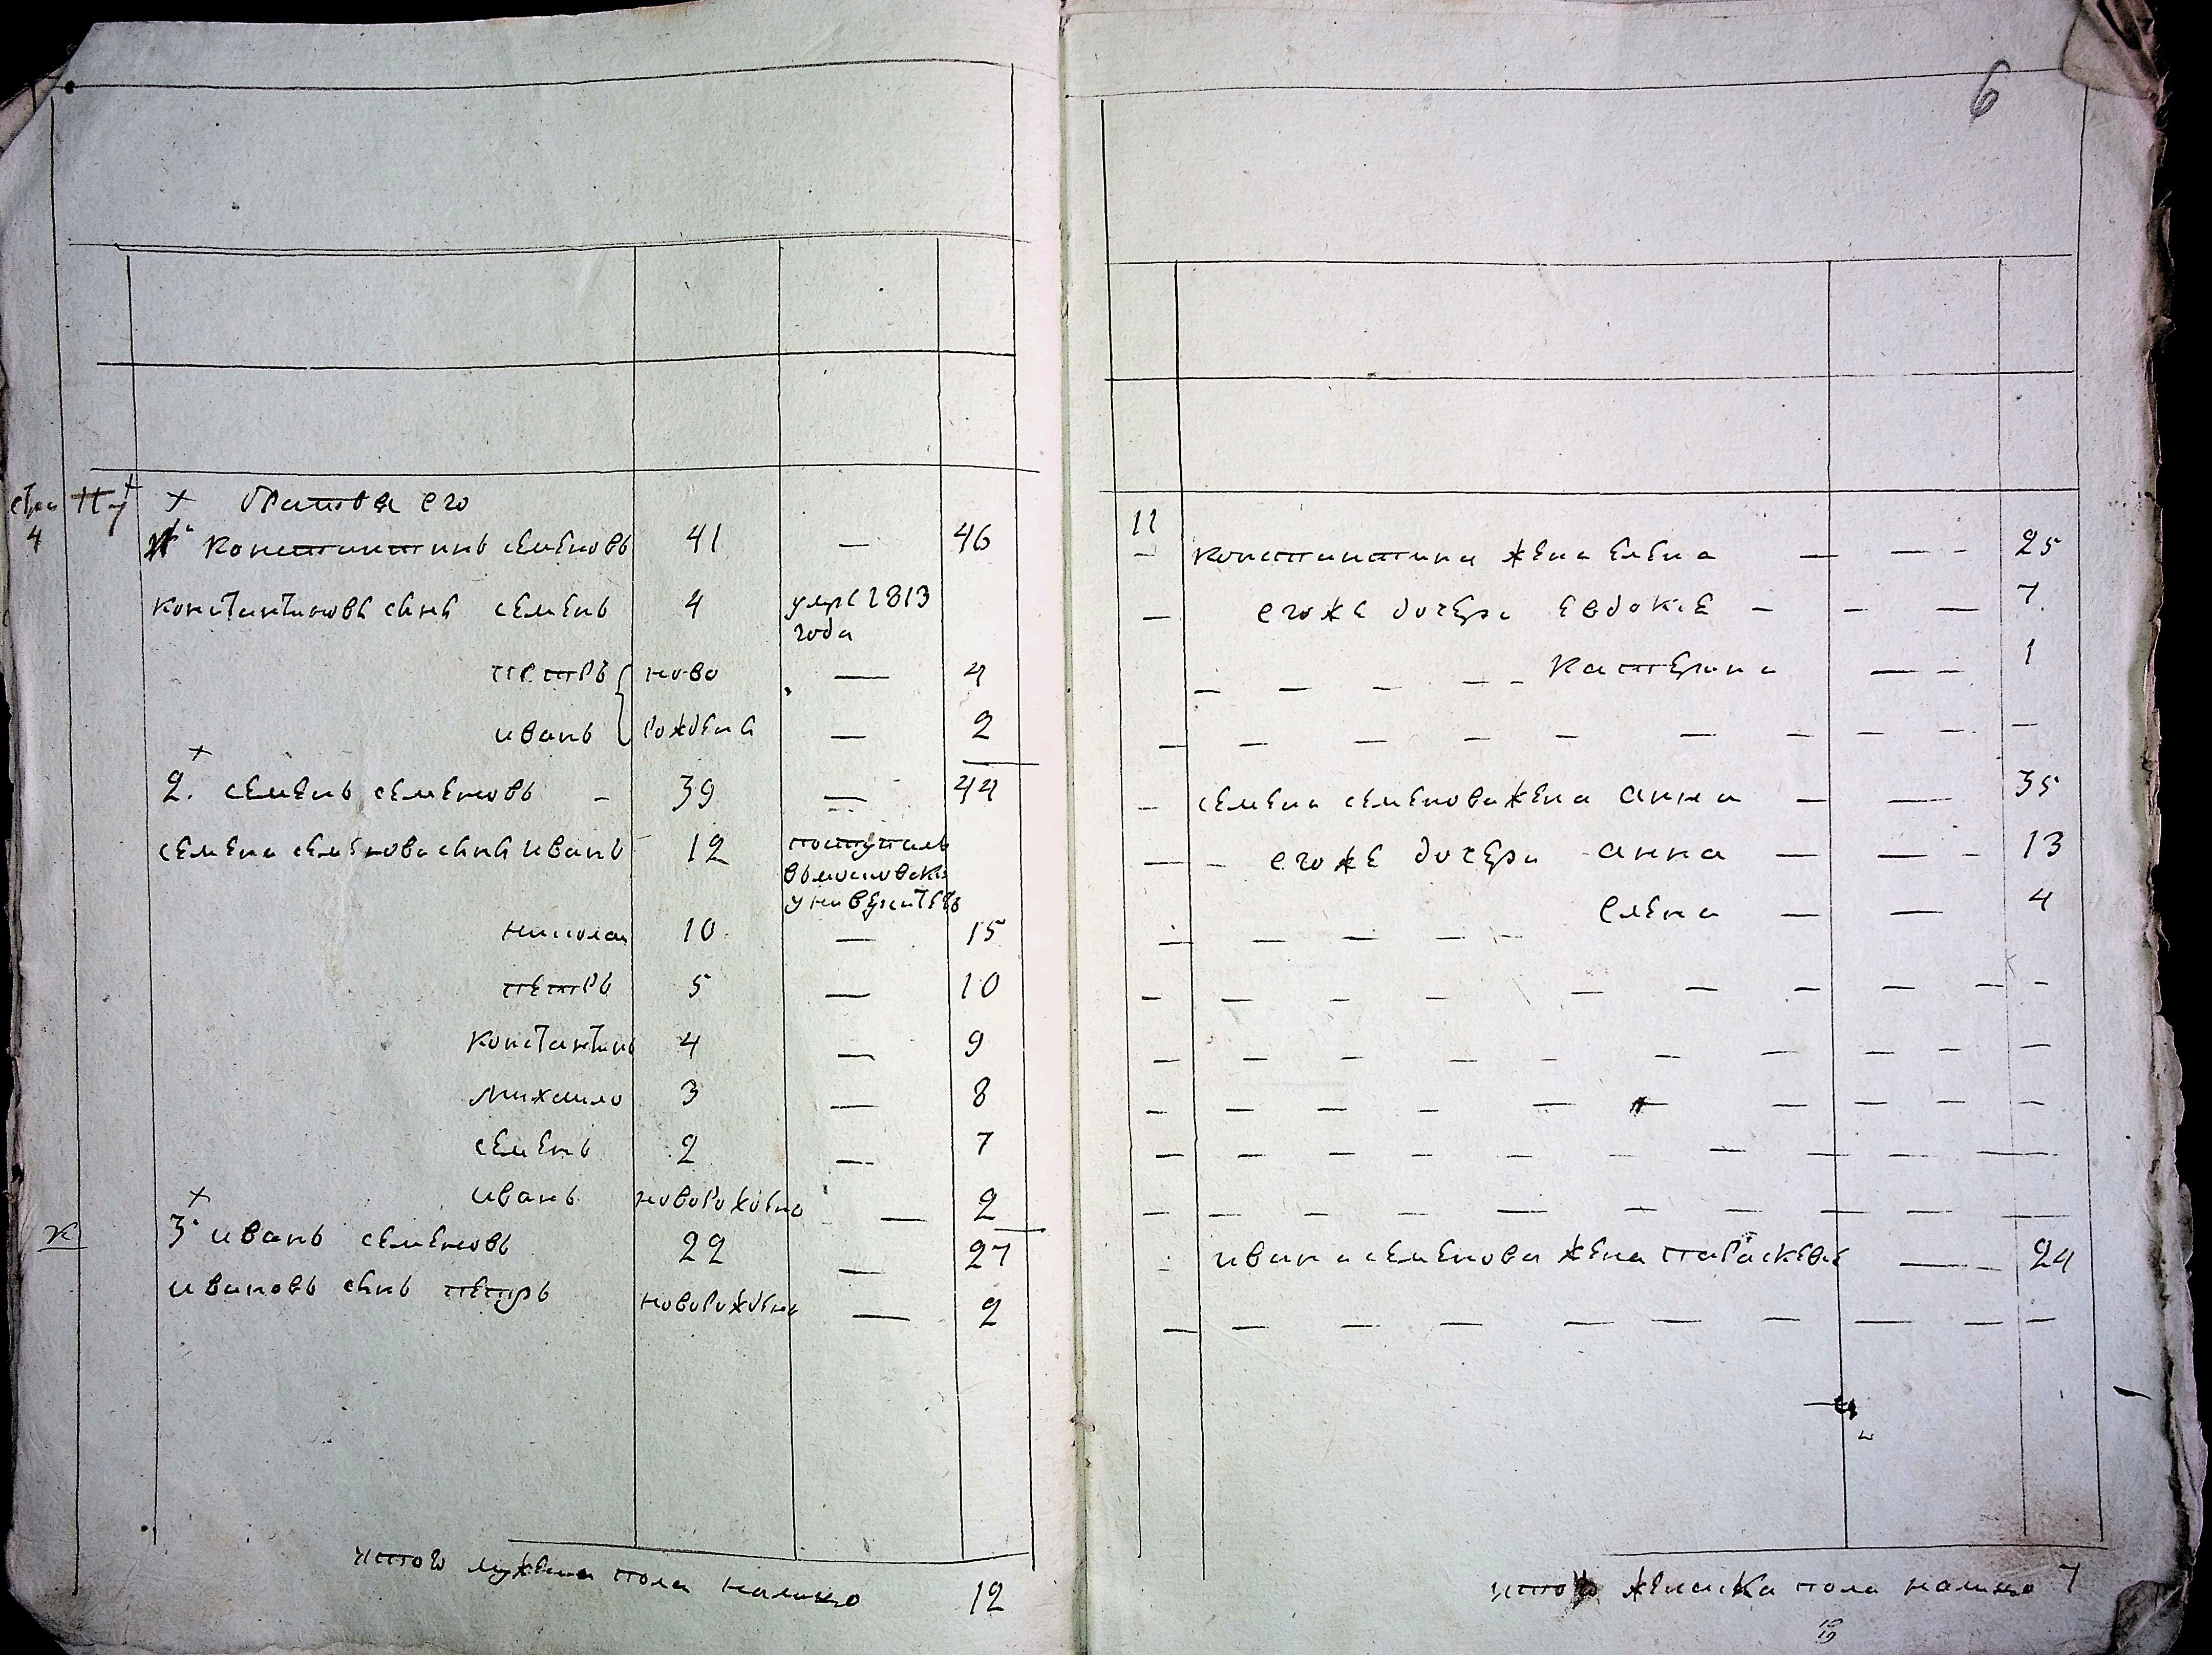 6
стра
4
× братья его
1. Константинъ семеновъ 41 — 46
константиновъ сынъ семенъ 4 умре 1813
года
петръ ново — 4
иванъ рождены — 2
×
2. семенъ семеновъ - 39 — 44
семена семенова сынъ иванъ 12 поступилъ
въ московски
университетъ
николаи 10 — 15
петръ 5 — 10
Константинъ 4 — 9
михаило 3 — 8
семенъ 2 — 7
иванъ новорождено — 2
×
3. иванъ семеновъ 22 — 27
ивановъ сынъ петръ новорождено — 2
итого мужеска пола налицо 12
11
Константина жена елена — — - 25
егоже дочери евдокие - - — 7.
катерина — - 1
семена семенова жена анна — — 35
егоже дочери анна — — - 13
елена — — 4
ивана семенова жена параскевия — 24
итого женска пола налицо 7
12
19